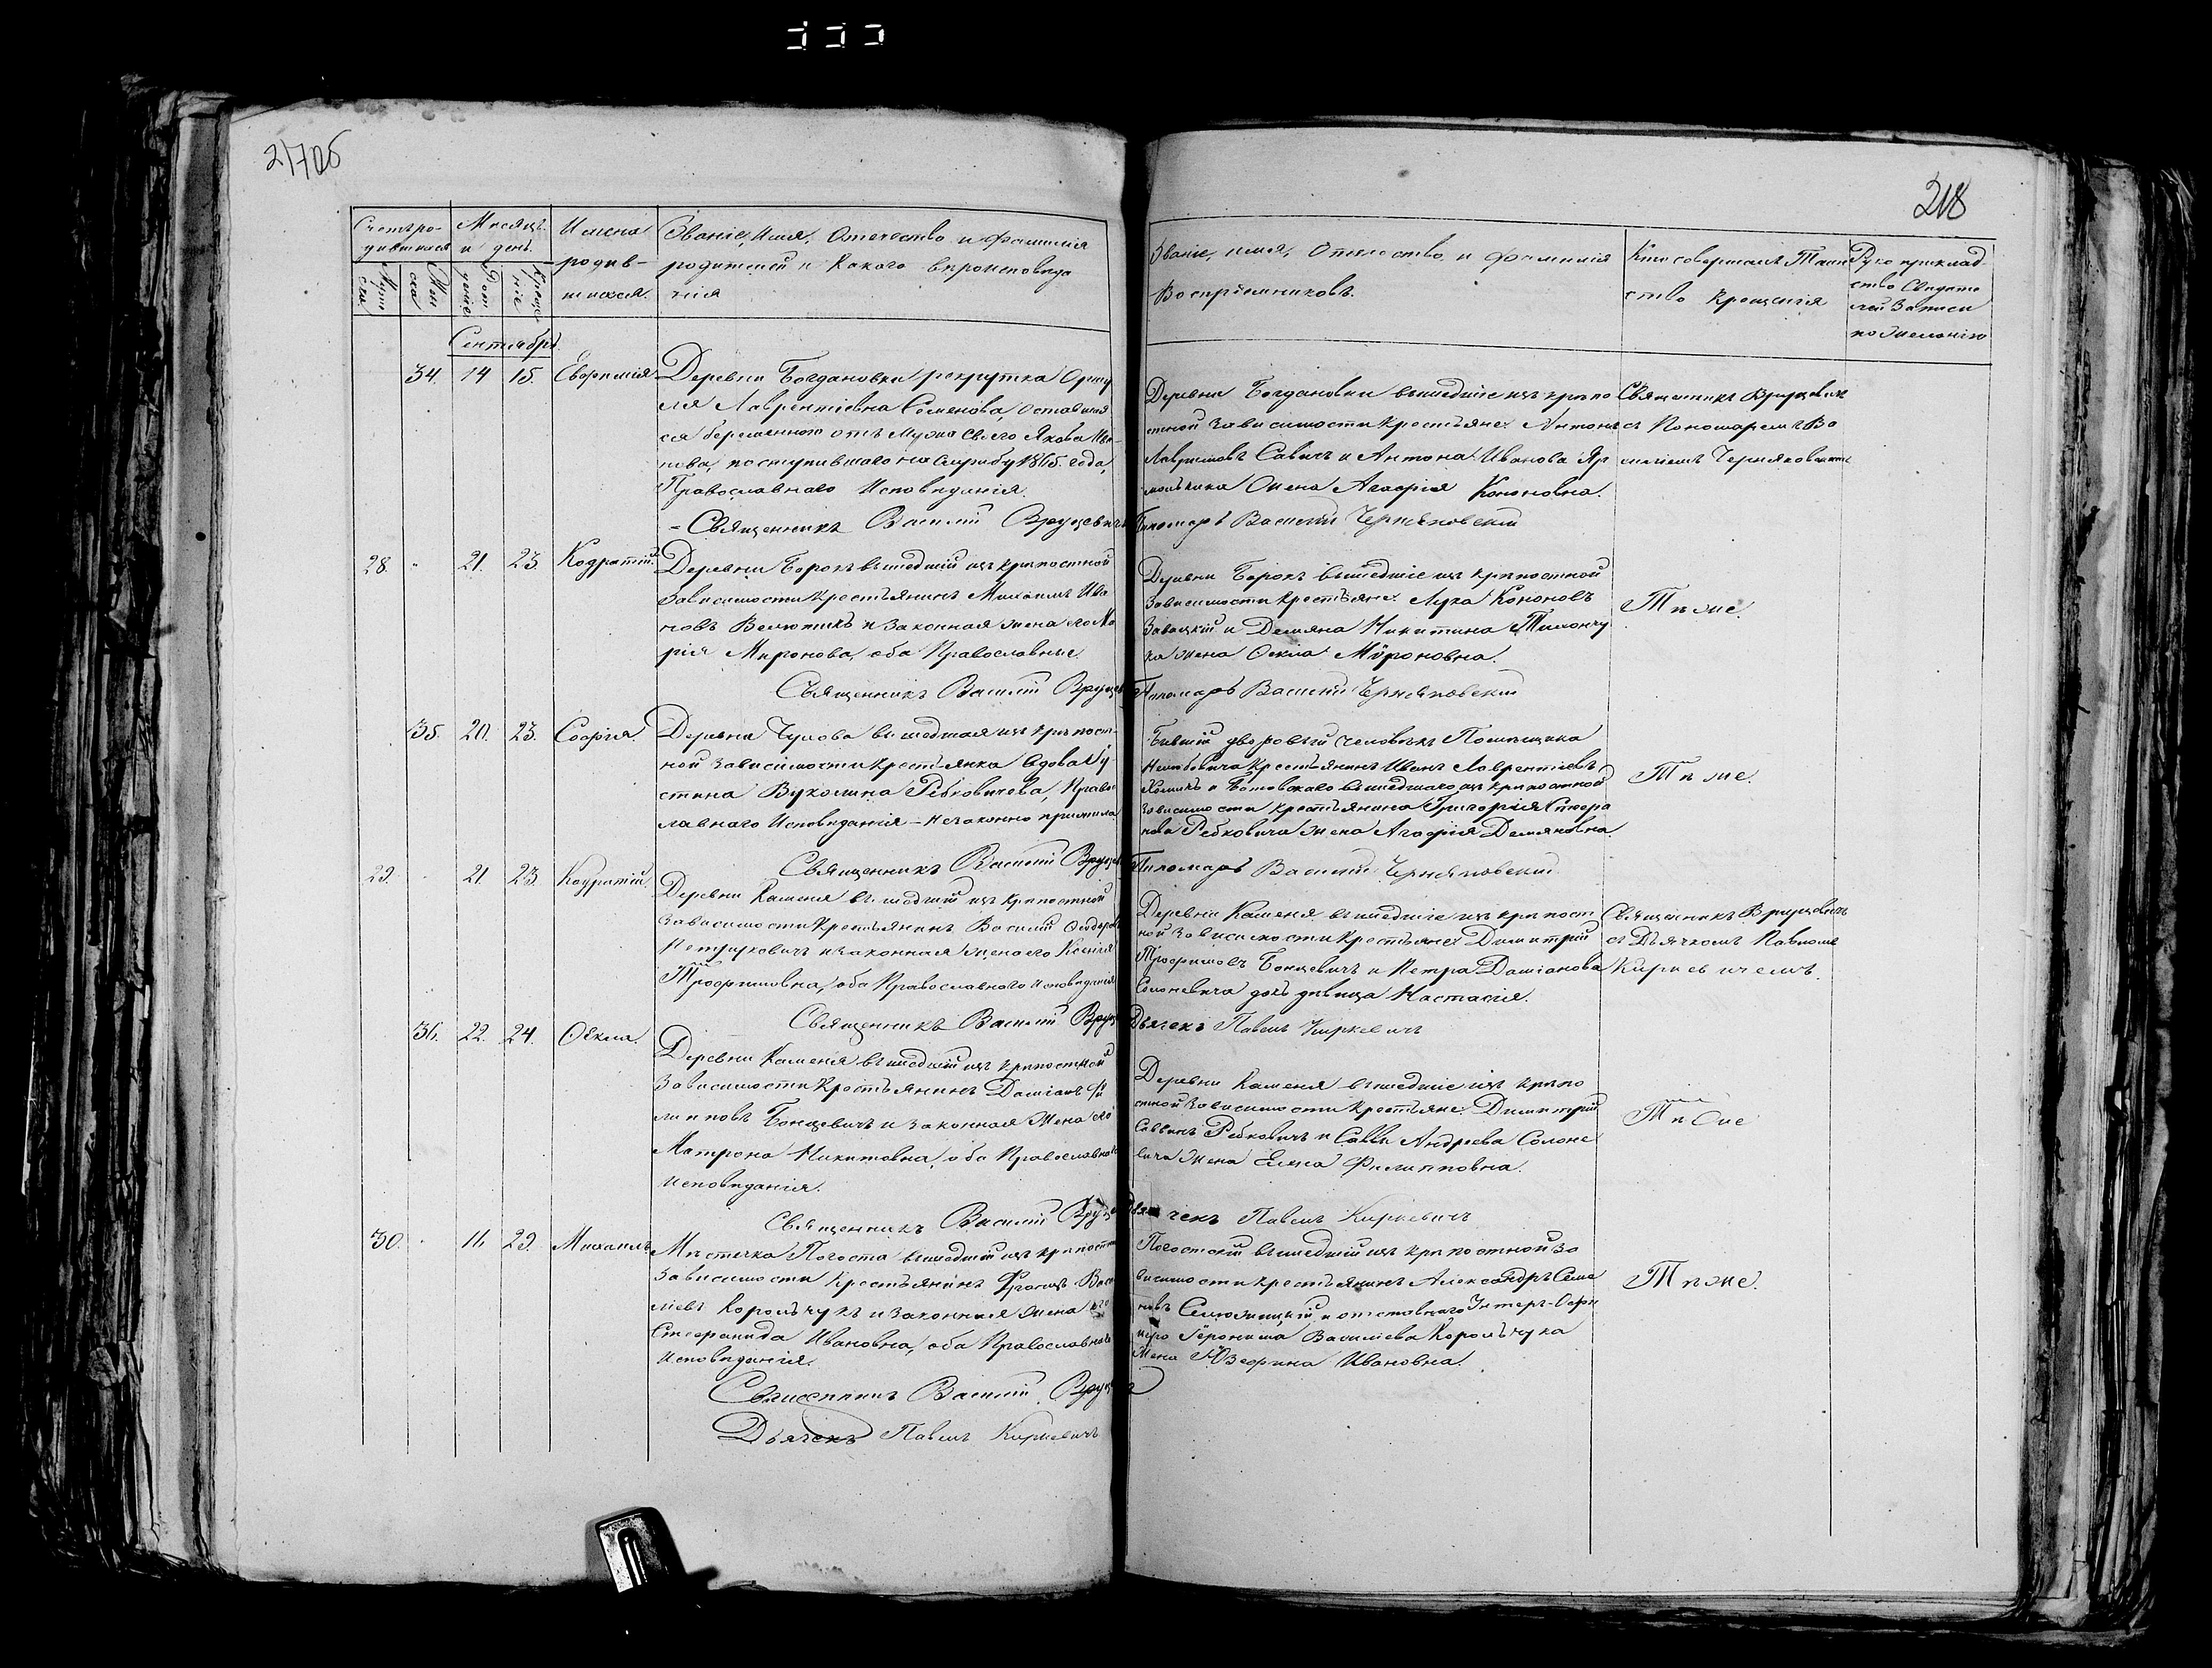 21706
218
Счетъ ро-
дившихся
Мѣсяцъ
и день.
Имена
родив-
шихся.
Званіе, Имя, Отечество и фамилія
родителей и Какого вѣроисповѣда
нія
Званіе, имя, Отчество и фамилія
Воспріемниковъ.
Кто совершалъ Таин
ство крещенія
Рукоприклад-
ство Свидѣте
лей Записи
по желанію
Сентябрь.
34. 14 15. Евфимія.
Деревни Богдановки рекрутка
Лаврентіевна Семенова, оставшая
ся беременною отъ мужа своего Якова
поступившаго на службу 1865. года,
Православнаго Исповѣданія.
- Священникъ Василій Вруцевичъ
Деревни Богдановки вышедшіе изъ крѣпо
стной зависимости Крестьяне: Антонъ
Савичъ и Антона Иванова Яр
жена Агафія Кононовна.
Пономарь Василій Черняковскій
Священникъ Вруцевичъ
съ Пономаремъ Ва
силіемъ Черняковскимъ
28. " 21. 23. Кодратій.
Деревни Борокъ вышедшій изъ крѣпостной
Зависимости Крестьянинъ Михаилъ Ива
новъ Велютичъ и Законная жена его Ма
рія Миронова, оба Православные
Священникъ Василій Вруцев
Деревни Борокъ вышедшіе изъ крѣпостной
Зависимости Крестьяне: Лука Кононовъ
Завацкій и Демяна Никитина Тихончу
ка жена Ѳекла Мѵроновна.
Пономарь Василій Черняковскій
Тѣ же.
35. 20. 23. Софія.
Деревни Чухова вышедшая изъ крѣпост-
ной зависимости Крестьянка вдова Іу-
стина Вуколина Рѣбковичева, Правос
лавнаго Исповѣданія - незаконно прижила
Священникъ Василій Вруцев
Бывшій дворовый человѣкъ Помѣщика
Крестьянинъ Иванъ Лаврентіевъ
и вышедшаго изъ крѣпостной
зависимости крестьянина Григорія Стефа
нова Рѣбковича жена Агафія Демяновна.
Пономарь Василій Черняковскій
Тѣ же.
29. " 21. 23. Кодратій.
Деревни Каменя вышедшій изъ крѣпостной
Зависимости Крестьянинъ Василій Ѳедоров
Петрукевичъ и законная жена его Ксенія
Трофимовна, оба Православнаго исповѣданія
Священникъ Василій Вруц
Деревни Каменя вышедшіе изъ крѣпост
ной Зависимости Крестьяне: Димитрій
Трофимовъ Бонцевичъ и Петра Даміанова
Солоневича дочь дѣвица Настасія.
Дьячекъ Павелъ Киркевичъ
Священникъ Вруцевичъ
съ Дьячкомъ Павломъ
Киркевичемъ.
36. 22. 24. Ѳекла.
Деревни Каменя вышедшій изъ крѣпостной
Зависимости Крестьянинъ Даміанъ Фи
липповъ Бонцевичъ и законная жена его
Матрона Никитовна, оба Православнаго
исповѣданія.
Священникъ Василій Вруц
Деревни Каменя вышедшіе изъ крѣпо
стной Зависимости Крестьяне: Димитрій
Саввинъ Рѣбковичъ и Саввы Андреева Солоне
вича жена Елена Филипповна.
Дьячекъ Павелъ Киркевичъ
Тѣ же
30. " 11. 29. Михаилъ.
Мѣстечка Погоста вышедшій изъ крѣпостной
Зависимости Крестьянинъ Францъ Васи
ліевъ Корольчукъ и Законная жена его
Стефанида Ивановна, оба Православнаго
Исповѣданія.
Священникъ Василій Вруцевичъ
Дьячекъ Павелъ Киркевичъ
Погостскій вышедшій изъ крѣпостной за
висимости крестьянинъ Александръ Семе
новъ и отставнаго Унтеръ-Офи
цера Іеронима Василіева Корольчука
жена Юзефина Ивановна.
Тѣ же.